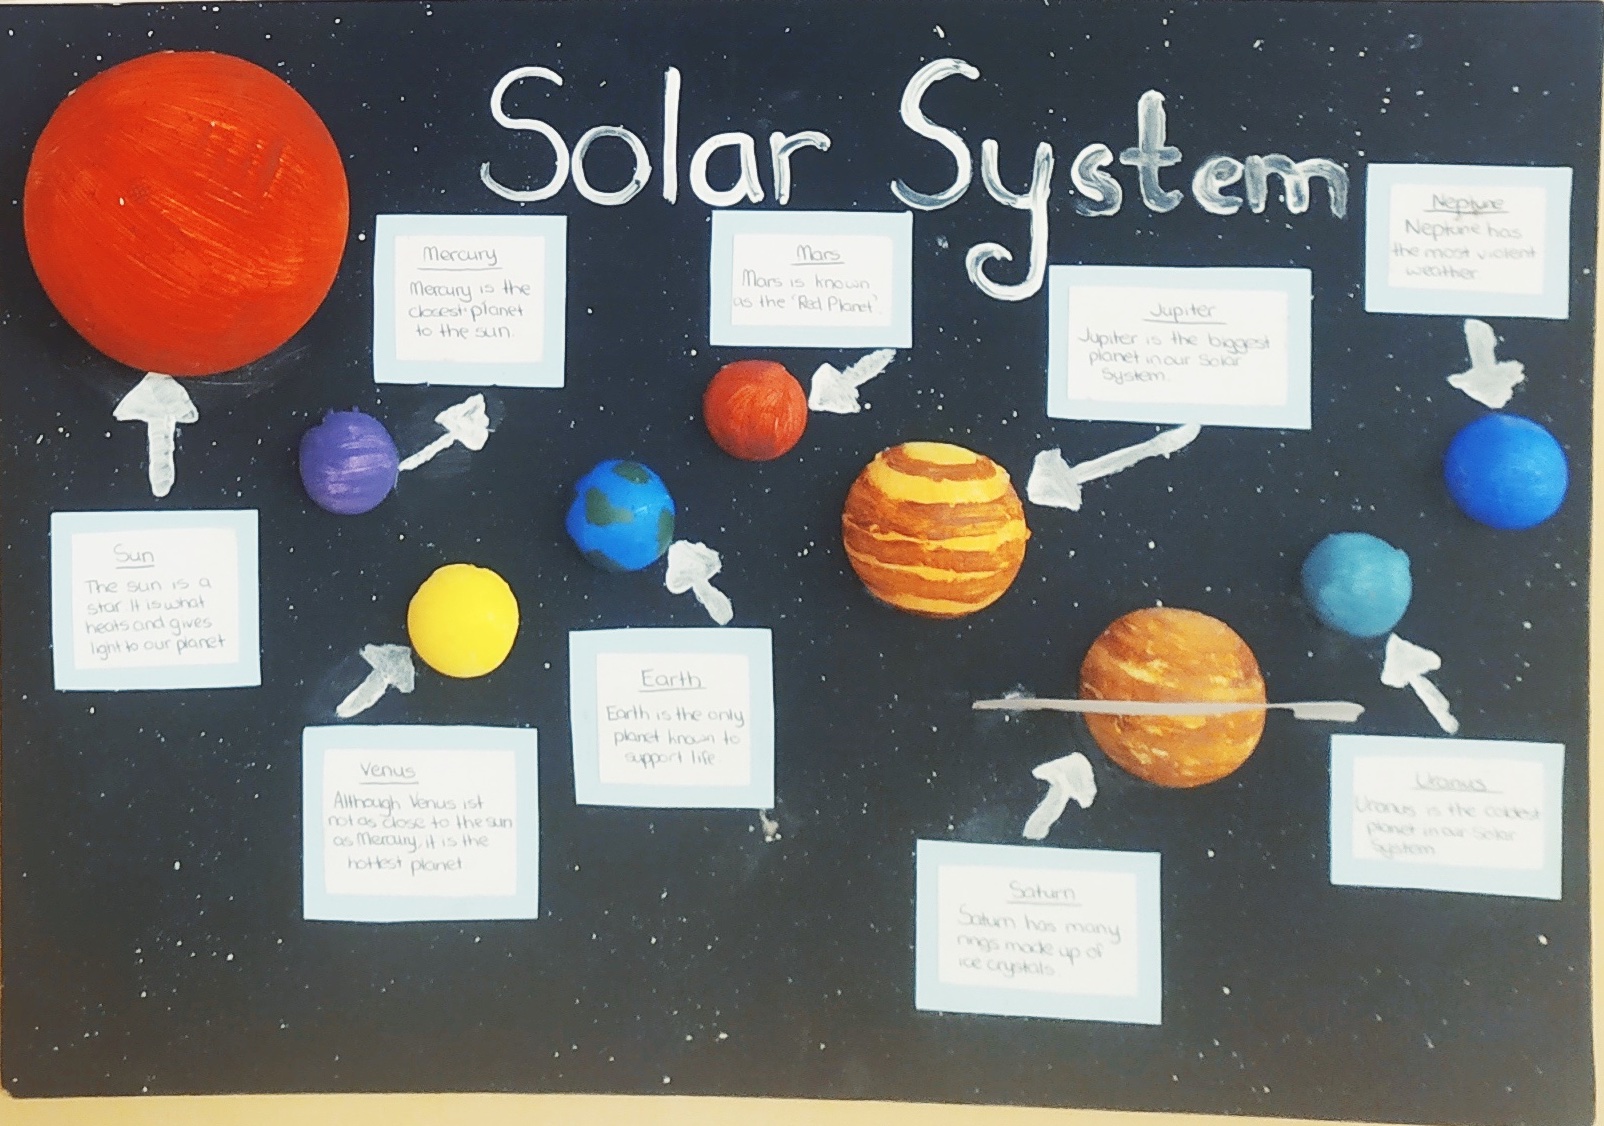 Solar System
Neptune
Neptune has
the most violent
weather
Mercury
Mercury is the
closest planet
to the sun.
Mars
Mars is known
as the 'Red Planet'.
Jupiter
Jupiter is the biggest
planet in our Solar
System.
Sun
The sun is a
star. It is what
heats and gives
light to our planet
Venus
Although Venus ist
not as close to the sun
as Mercury, it is the
hottest planet
Earth
Earth is the only
planet known to
support life.
Saturn
Saturn has many
rings made up of
ice crystals
Uranus
Uranus is the coldest
planet in our Solar
System.